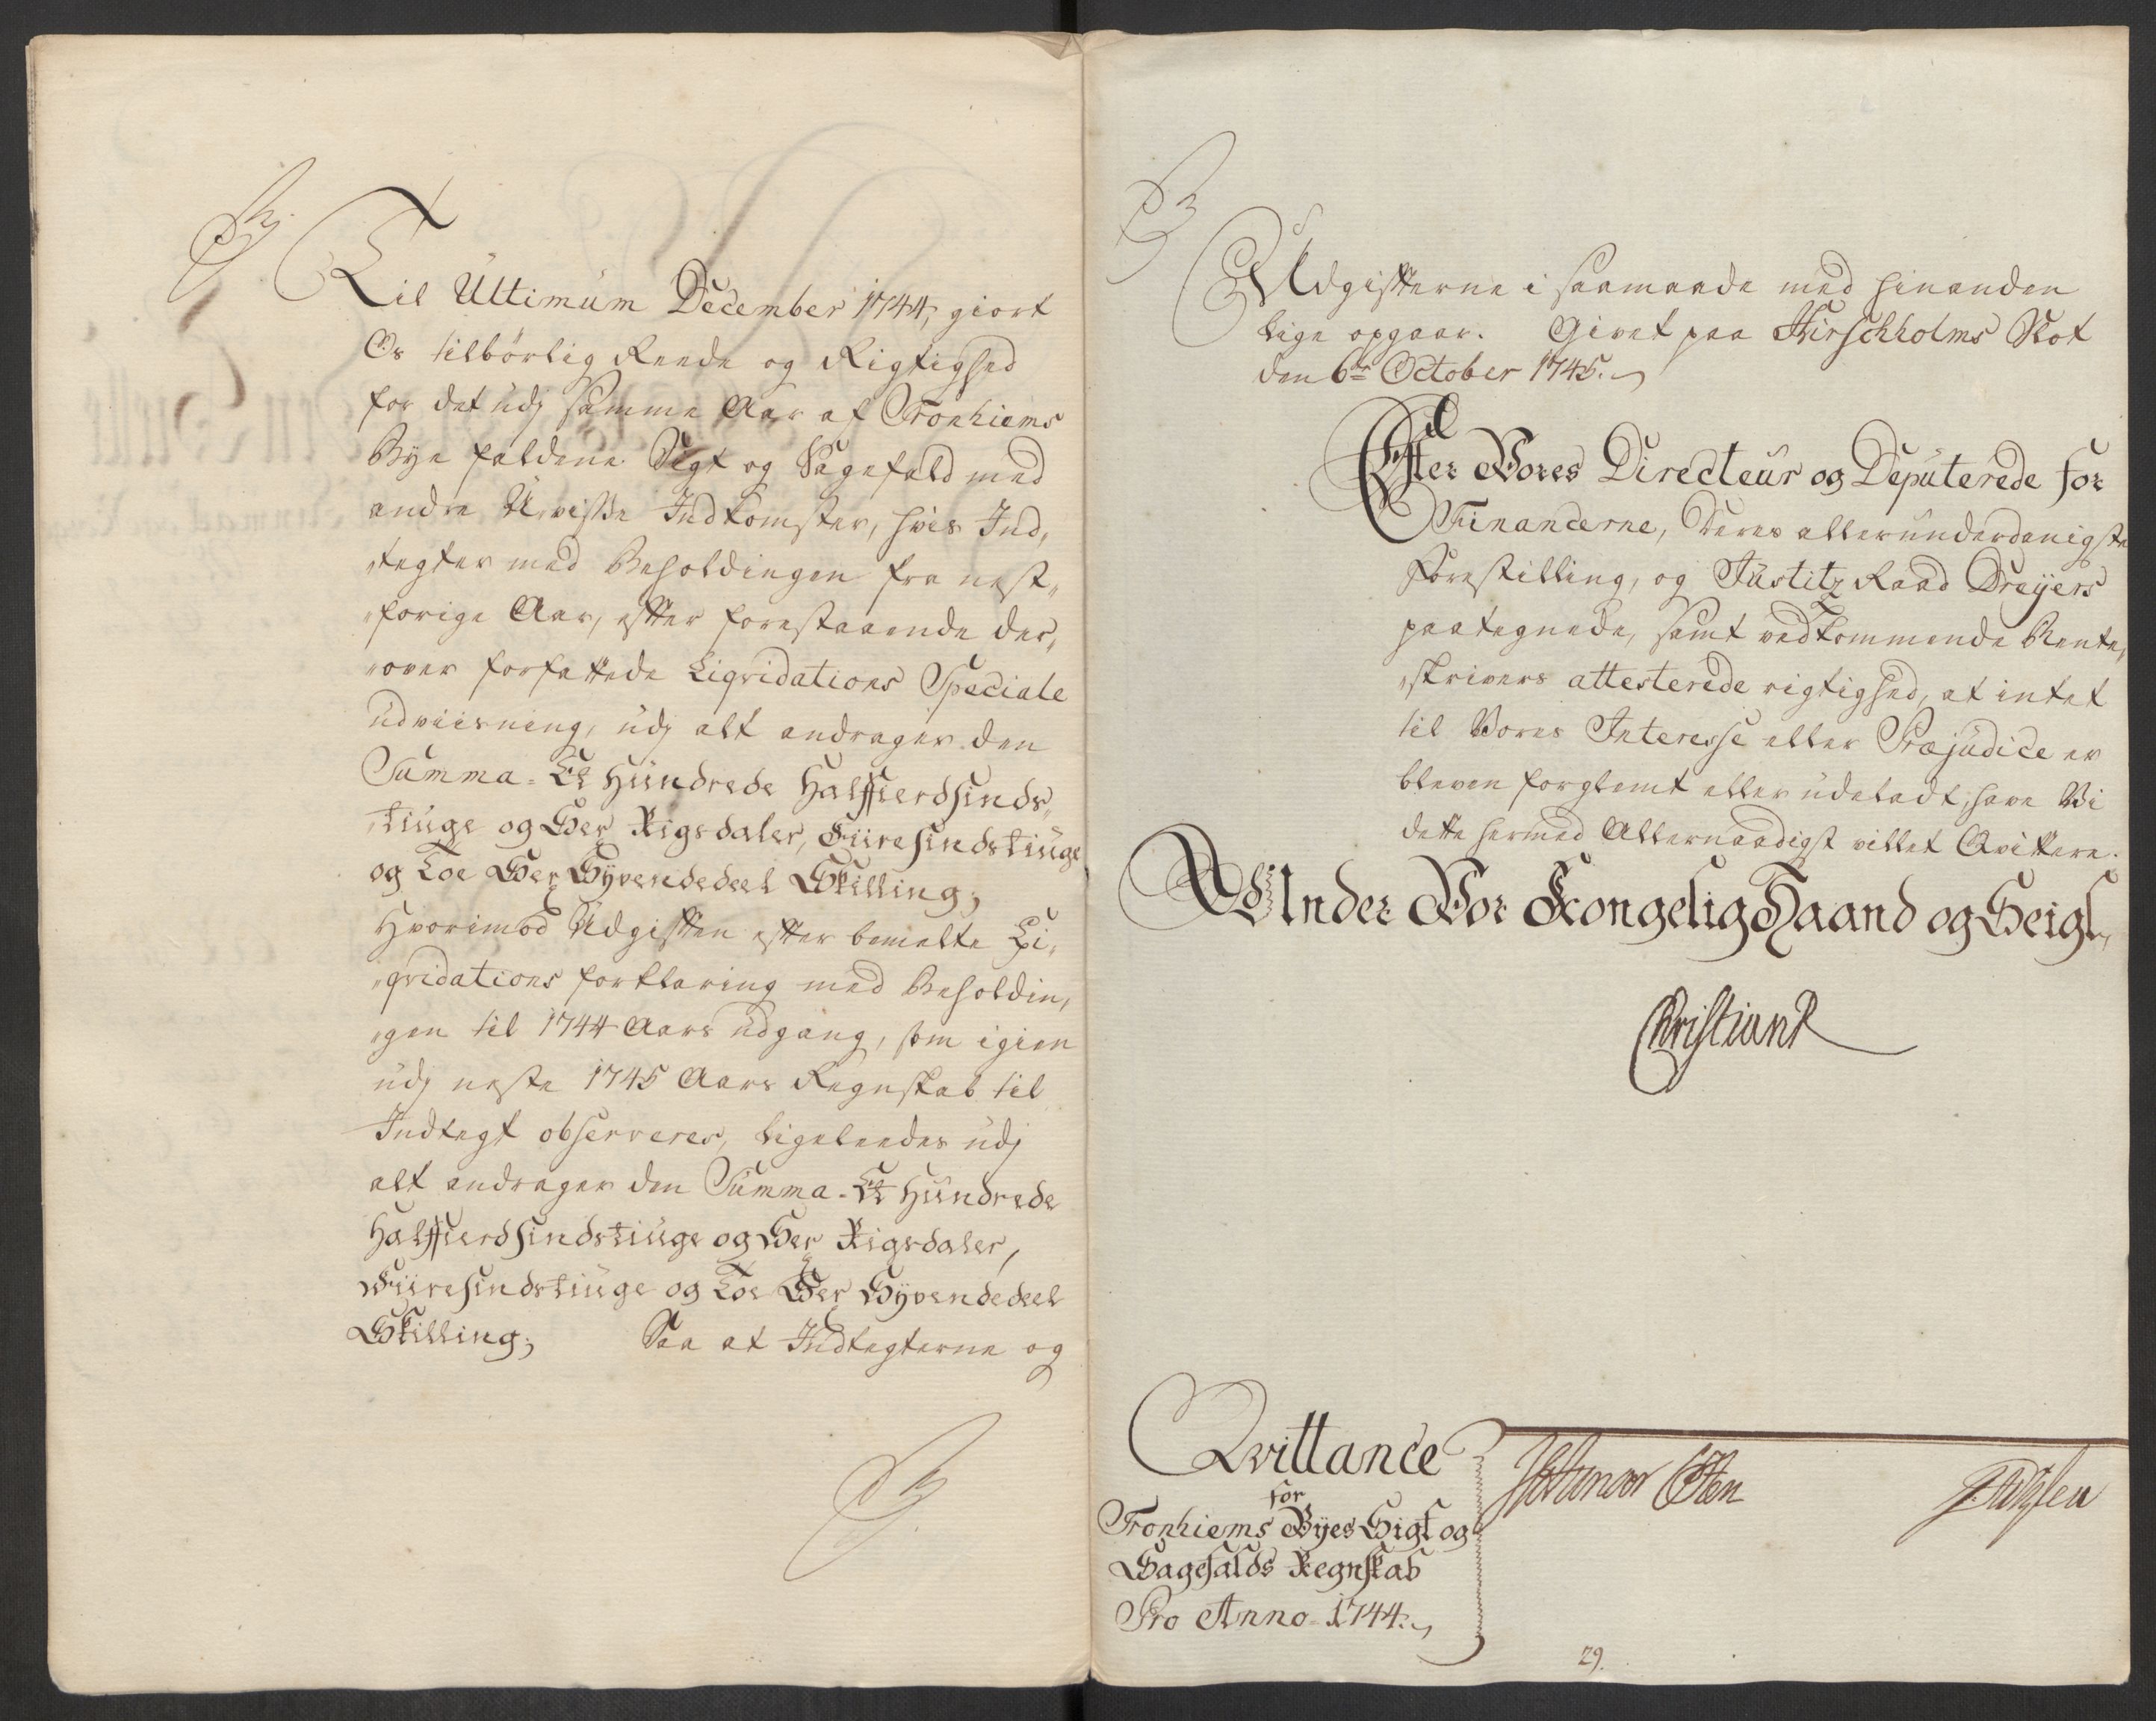 Til Ultimum December 1744, giort
Os tilbørlig Reede og Rigtighed
for det udj samme Aar af Tronhiems
Bye faldene Sigt og Sagefald med
andre Uvisse Indkomster, hvis Ind„
„tegter med Beholdingen fra nest„
„forige Aar, efter forestaaende der„
„over forfattede Liqvidations Speciale
udviisning, udj alt andrager den
Summa - Et Hundrede Halffierdsinds„
„tiuge og Sex Rigsdaler, Fiiresindstiuge
og Toe Sex Syvendedeel Skilling;
Hvorimod Udgiften efter bemelte Li„
„qvidations forklaring med Beholdin„
„gen til 1744 Aars udgang, som igien
udj neste 1745 Aars Regnskab til
Indtegt observeres, ligeleedes udj
alt andrager den Summa - Et Hundrede
Halffierdsindstiuge og Sex Rigsdaler,
Fiiresindstiuge og Toe Sex Syvendedeel
Skilling; Saa at Indtegterne og
Udgifterne i saamaade med hinanden
lige opgaar. Givet paa Hirschholms Slot
den 6te October 1745.
Efter Vores Directeur og Deputerede for
Financerne, Deres allerunderdanigste
Forestilling, og Justitz Raad Dreyers
paategnede, samt vedkommende Rente„
„skrivers attesterede rigtighed, at intet
til Vores Interesse eller Præjudice er
bleven forglemt eller udeladt, have Vi
dette hermed Allernaadigst villet Qvittere.
Under Vor Kongelig Haand og Seigl„
Christian R
Qvittance
for
Tronhiems Byes Sigt og
Sagefalds Regnskab
Pro Anno 1744.
29.